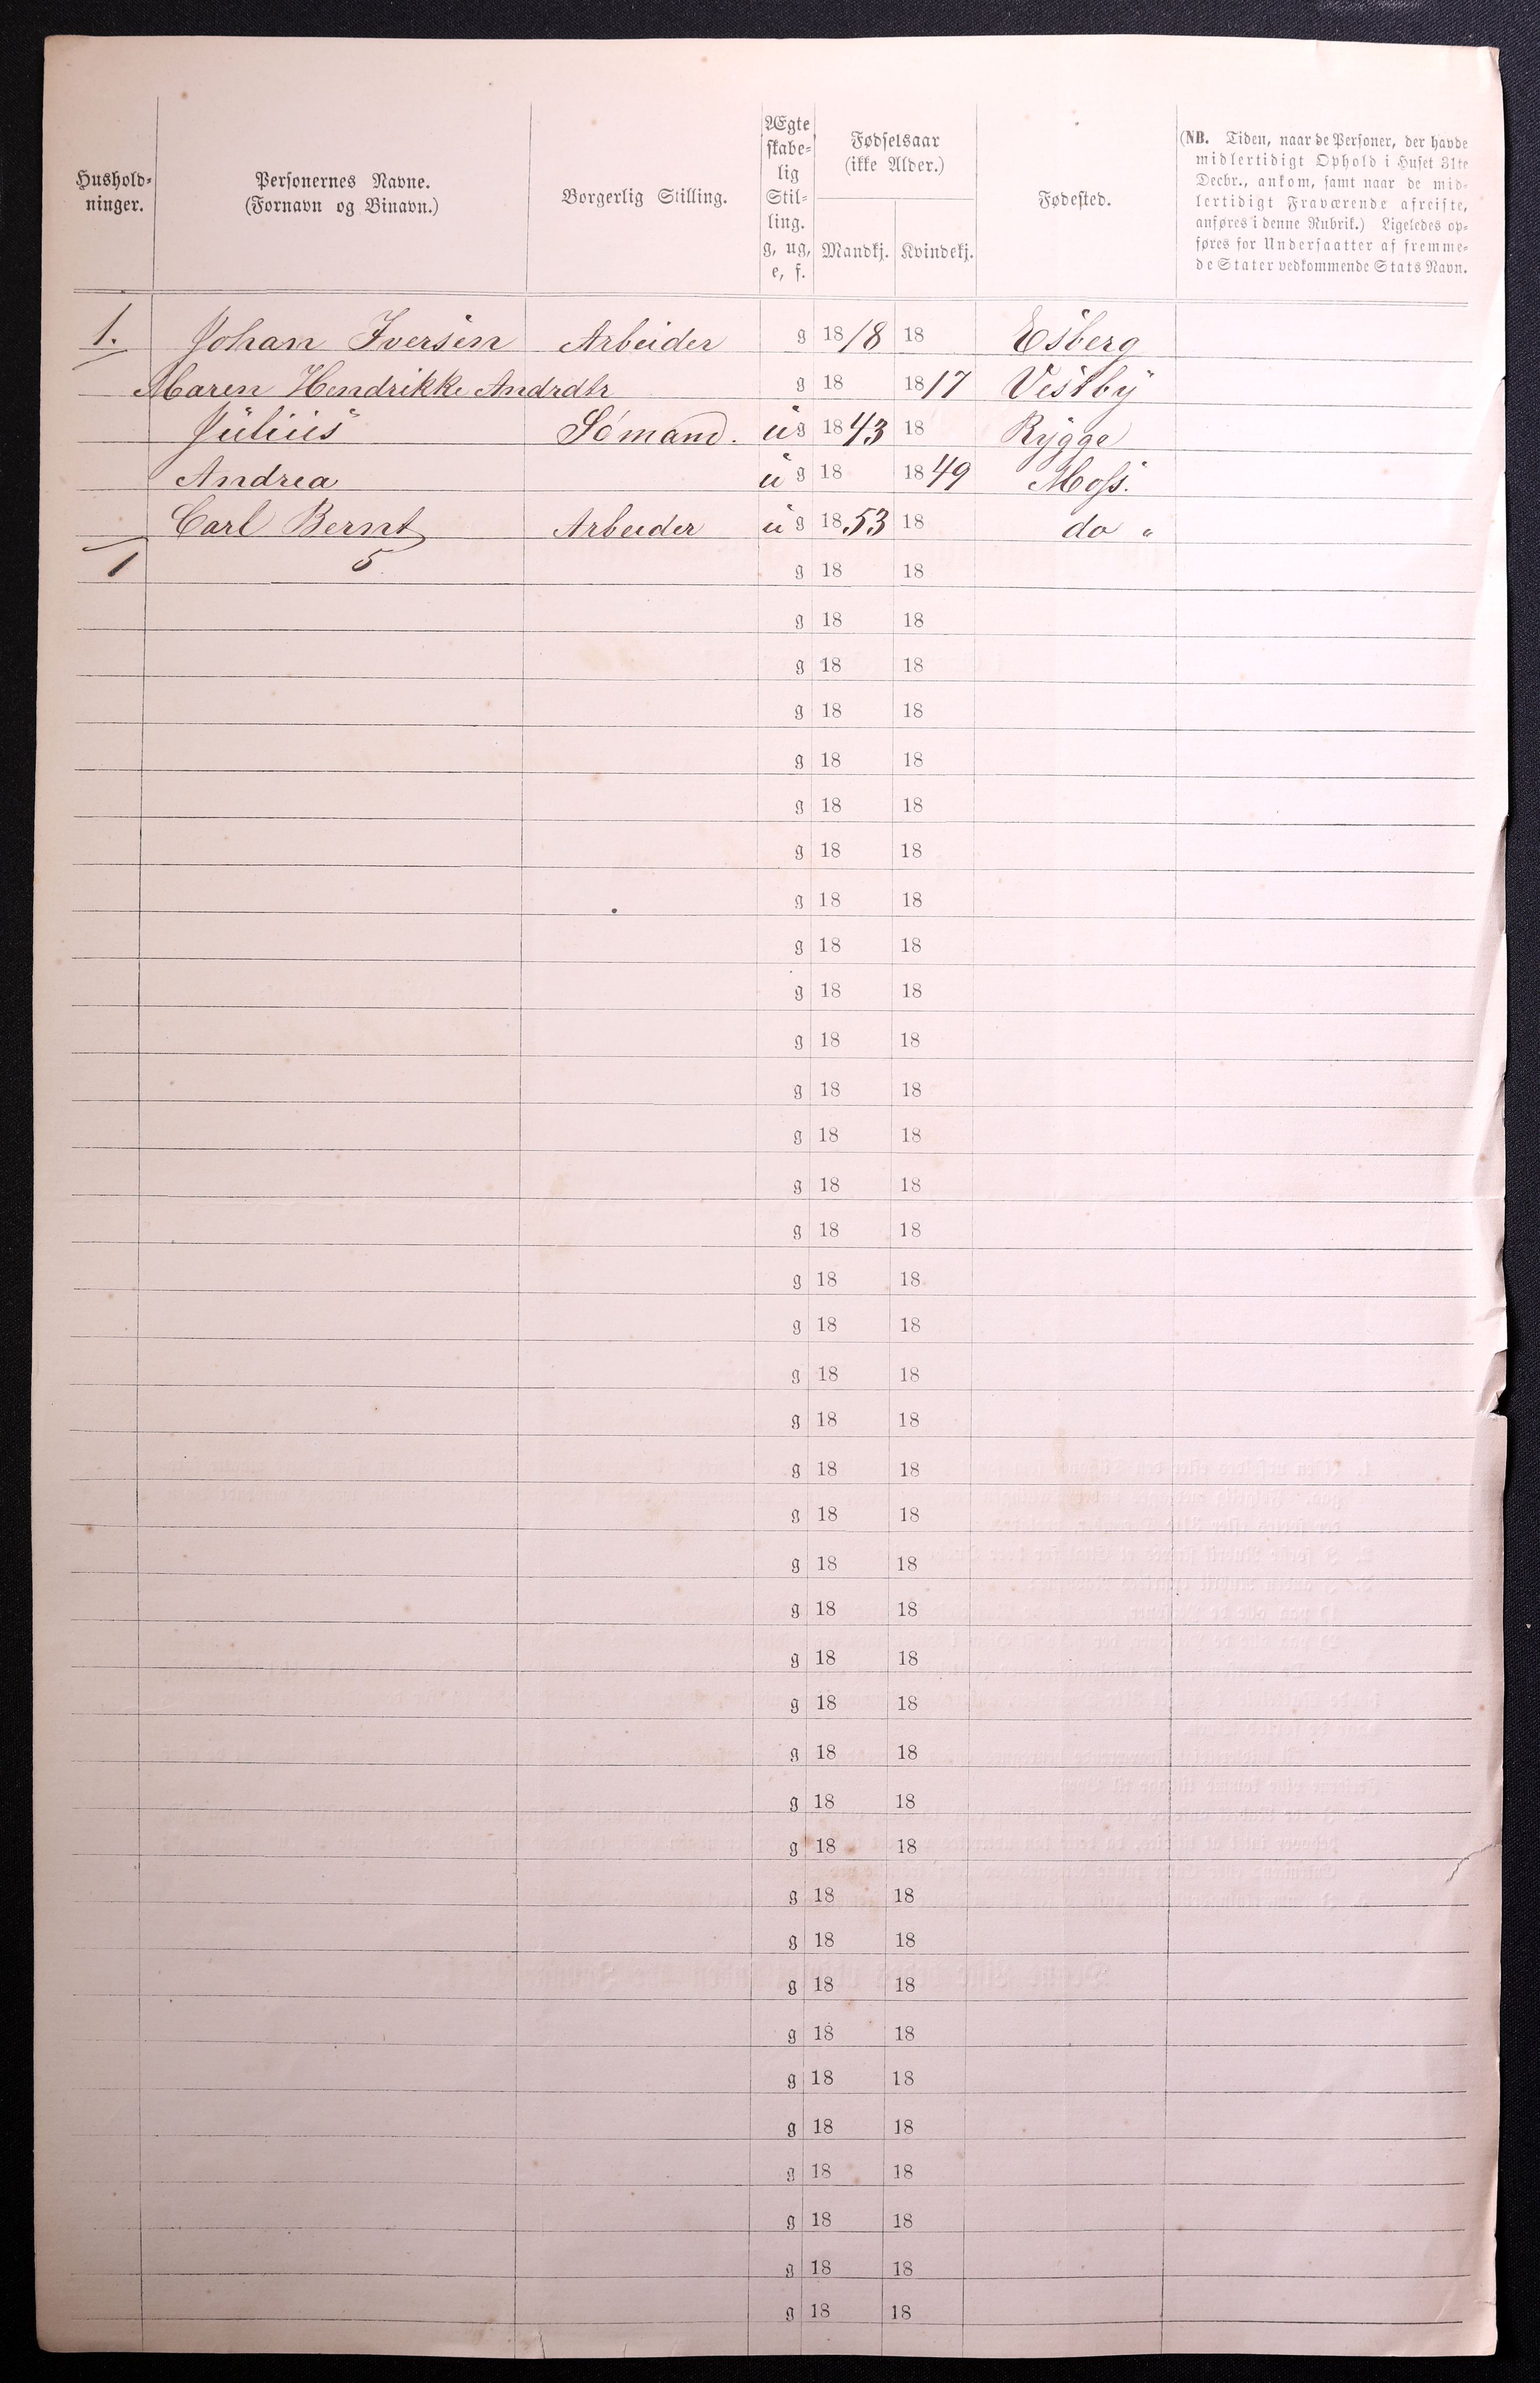 Hushold-
ninger.
Personernes Navne.
(Fornavn og Binavn.)
Borgerlig Stilling.
Ægte
skabe-
lig
Stil-
ling.
g, ug,
e, f.
Fødselsaar
(ikke Alder.)
Mandkj. Kvindekj.
Fødested.
(NB. Tiden, naar de Personer, der havde
midlertidigt Ophold i Huset 31te
Decbr., ankom, samt naar de mid-
lertidigt Fraværende afreiste,
anføres i denne Rubrik.) Ligeledes op-
føres for Undersaatter af fremme-
de Stater vedkommende Stats Navn.
1. Johan Iversen Arbeider g 1818 18 Esberg
Maren Hendrikke Andrdtr g 18 1817 Vestby
Julius Sömand. ug 1843 18 Rygge
Andrea ug 18 1849 Moss.
Carl Bernt Arbeider ug 1853 18 do "
1 5 g 18 18
g 18 18
g 18 18
g 18 18
g 18 18
g 18 18
g 18 18
g 18 18
g 18 18
g 18 18
g 18 18
g 18 18
g 18 18
g 18 18
g 18 18
g 18 18
g 18 18
g 18 18
g 18 18
g 18 18
g 18 18
g 18 18
g 18 18
g 18 18
g 18 18
g 18 18
g 18 18
g 18 18
g 18 18
g 18 18
g 18 18
g 18 18
g 18 18
g 18 18
g 18 18
g 18 18
g 18 18
g 18 18